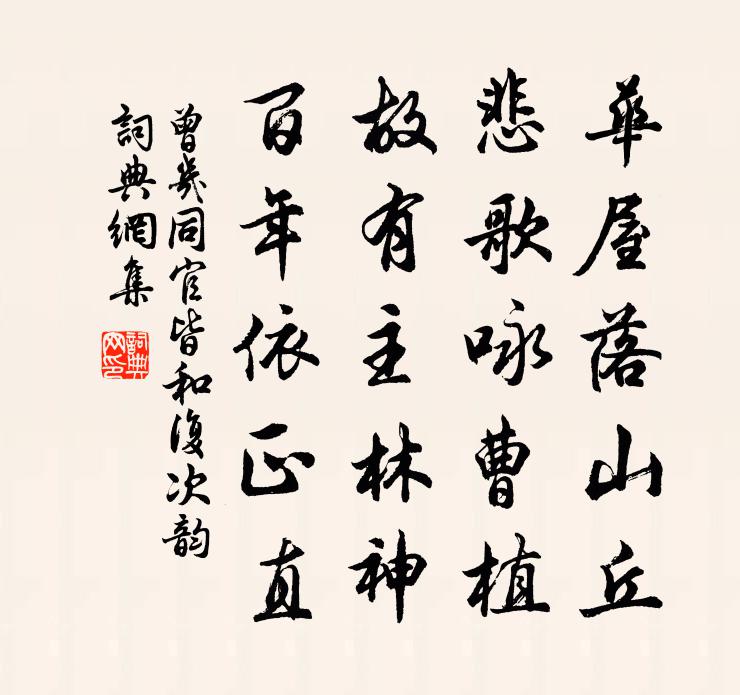 華屋落山丘
悲歌咏曹植
故有主林神
百年依正直
曾幾同官皆和復次韵
詞典網集
詞典網印